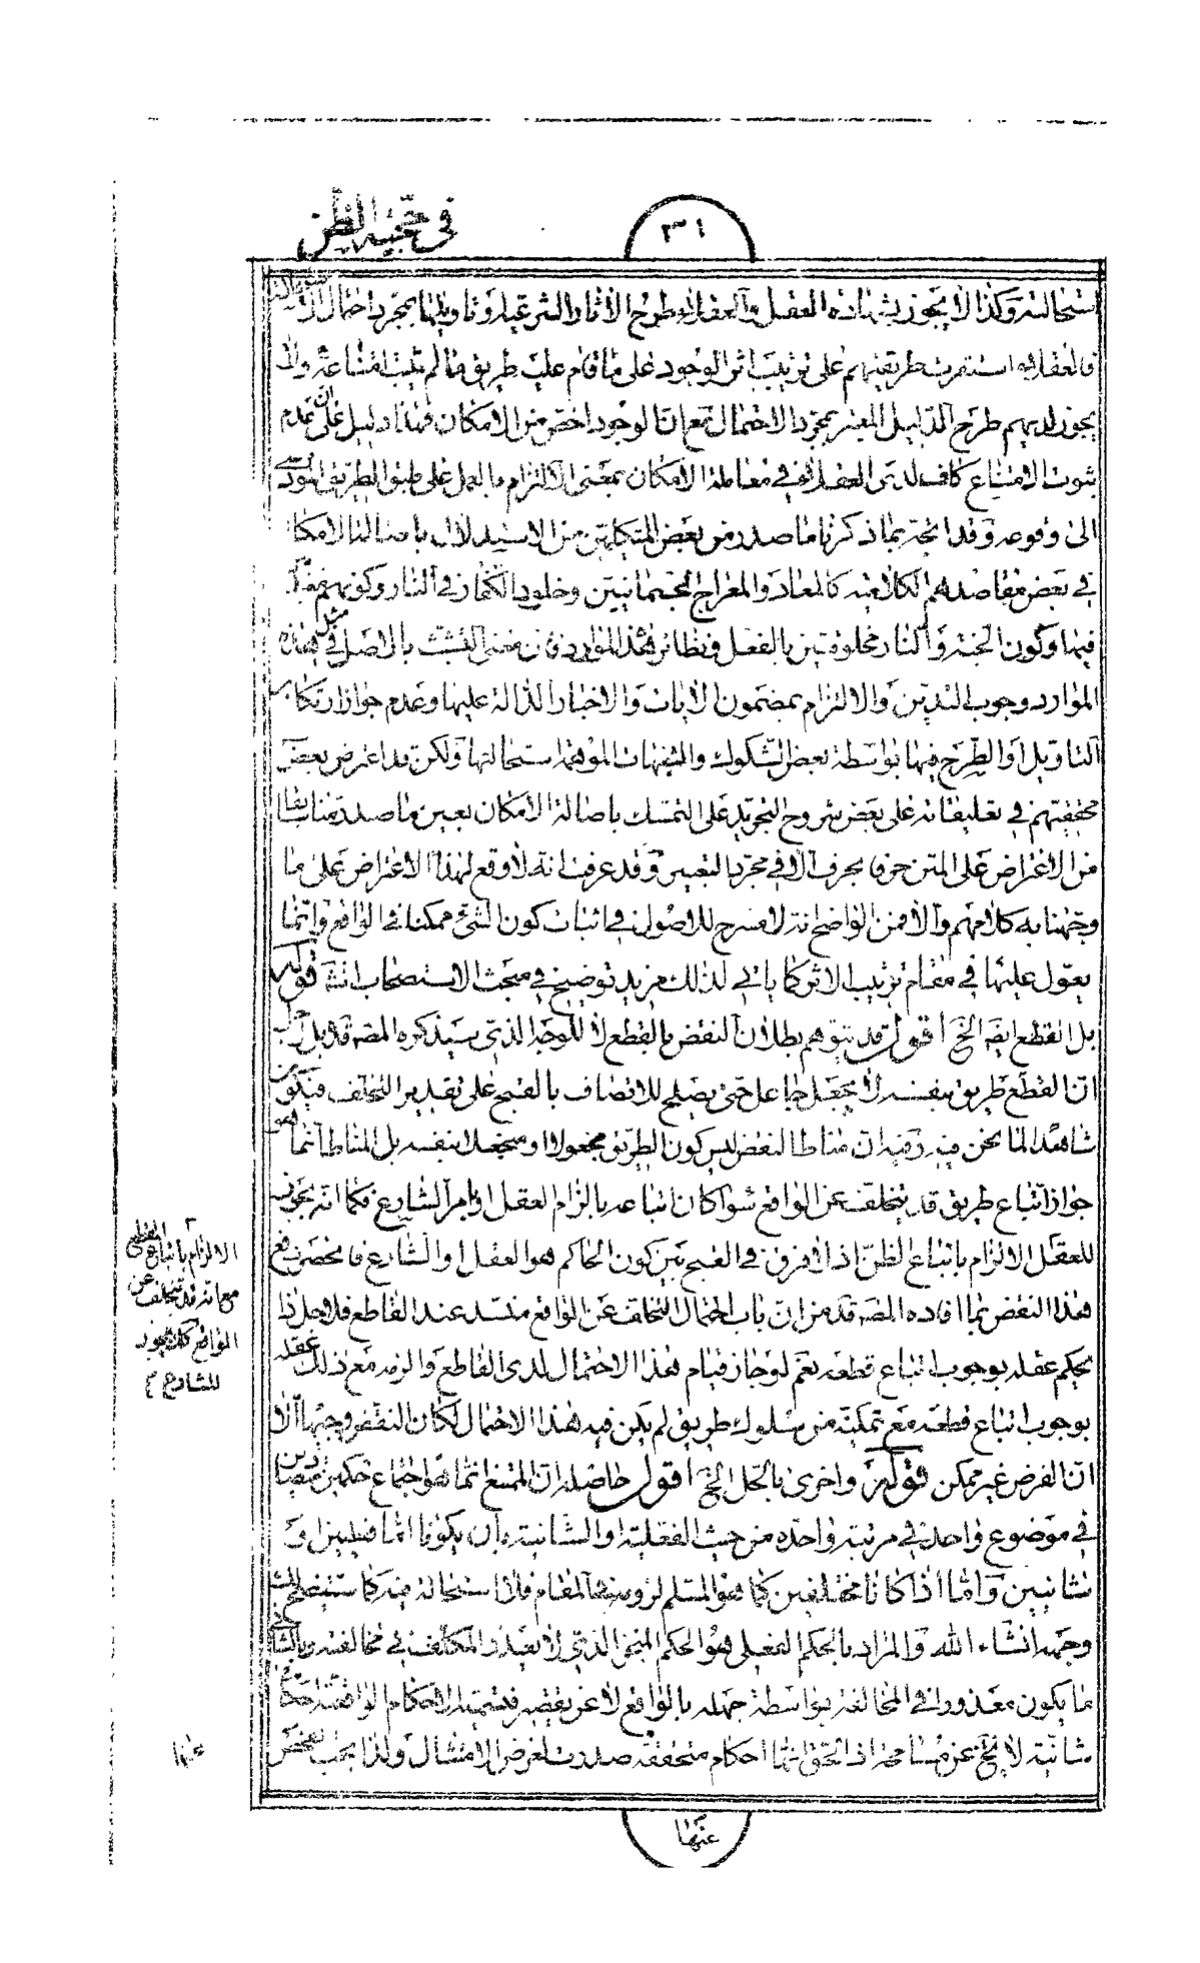 في حجية الظن
٣١
استحالته وكذا لا يجوز بشهادة العقل والعقلاء طرح الآثار الشرعية وتاويلها بمجرد احتمال
فالعقلاء استقرت طريقتهم على ترتيب اثر الوجود على ما قام عليه طريق ما لم يثبت امتناعه ولا
يجوز لديهم طرح الدليل المعتبر بمجرد الاحتمال مع ان الوجود اخص من الامكان فهذا دليل على ان عدم
ثبوت الامتناع كاف لدى العقلاء في معاملة الامكان بمعنى الالتزام بالعمل على طبق الطريق المؤدي
الى وقوعه وقد اتجه بما ذكرنا ما صدر من بعض المتكلمين من الاستدلال باصالة الامكان
في بعض مقاصدهم الكلامية كالمعاد والمعراج الجسمانيين وخلود الكفار في النار وكونهم
فيها وكون الجنة والنار مخلوقتين بالفعل ونظائر هذه الموارد فان معنى التشبث بالاصل في مثل هذه
الموارد وجوب التدين والالتزام بمضمون الايات والاخبار الدالة عليها وعدم جواز ارتكاب
التاويل او الطرح فيها بواسطة بعض الشكوك والشبهات الموهمة استحالتها ولكن قد اعترض بعض
محققيهم في تعليقاته على بعض شروح التجريد على التمسك باصالة الامكان بعين ما صدر
من الاعتراض على المتن حرفا بحرف الا في مجرد التعبير وقد عرفت انه لا وقع لهذا الاعتراض على ما
وجهنا به كلامهم والا فمن الواضح انه لا مسرح للاصول في اثبات كون الشئ ممكنا في الواقع وانما
يعول عليها في مقام ترتيب الاثر كما ياتي لذلك مزيد توضيح في مبحث الاستصحاب انشه قوله
بل القطع ايضه الخ اقول قد يتوهم بطلان النقض بالقطع لا للوجه الذي سيذكره المصه قده بل
ان القطع طريق بنفسه لا بجعل جاعل حتى يصلح للاتصاف بالقبح على تقدير التخلف فيكون
شاهدا لما نحن فيه وفيه ان مناط النقض ليس كون الطريق مجعولا او منجعلا بنفسه بل المناط انما هو
جواز اتباع طريق قد يتخلف عن الواقع سواء كان اتباعه بالزام العقل او بامر الشارع فكما انه يجوز
للعقل الالزام باتباع الظن اذ لا فرق في القبح بين كون الحاكم هو العقل او الشارع فانحصر دفع
هذا النقض بما افاده المصه قده من ان باب احتمال التخلف عن الواقع منسد عند القاطع فلاجل ذا
يحكم عقله بوجوب اتباع قطعه نعم لو جاز قيام هذا الاحتمال لدى القاطع والزمه مع ذلك عقله
بوجوب اتباع قطعه مع تمكنه من سلوك طريق لم يكن فيه هذا الاحتمال لكان النقض وجيها الا
ان الفرض غير ممكن قوله واخرى بالحل الخ اقول حاصله ان الممتنع انما هو اجتماع حكمين متضادين
في موضوع واحد في مرتبة واحدة من حيث الفعلية او الشانية بان يكونا اما فعليين او
شانيين واما اذا كانا مختلفين كما هو المسلم لزومه في المقام فلا استحالة فيه كما ستتضح لك
وجهه انشاء الله والمراد بالحكم الفعلي هو الحكم المنجز الذي لا يعذر المكلف في مخالفته وبالشاني
ما يكون معذورا في المخالفة بواسطة جهله بالواقع لا عن تقصير فتسمية الاحكام الواقعية احكاما
شانية لا يخ عن مسامحة اذ الحق انها احكام متحققة صدرت لغرض الامتثال ولذا يجب الفحص
عنها
الالزام باتباع القطع
مع انه قد يتخلف عن
الواقع كك يجوز
للشارع
عنها